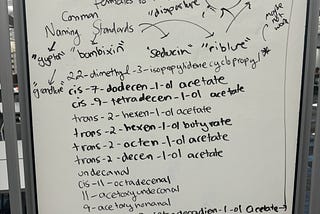 females to
Common "disparture"
Naming Standards
"gyptol" "bombixin" "seducin" "riblure" maybe not work
"grandlure" 2,2-dimethyl-3-isopropylidenecyclopropyl *
cis-7-dodecen-1-ol acetate
cis-9-tetradecen-1-ol acetate
trans-2-hexen-1-ol acetate
trans-2-hexen-1-ol butyrate
trans-2-octen-1-ol acetate
trans-2-decen-1-ol acetate
undecanal
cis-11-octadecenal
11-acetoxyundecanal
9-acetoxynonanal
-1-ol acetate→